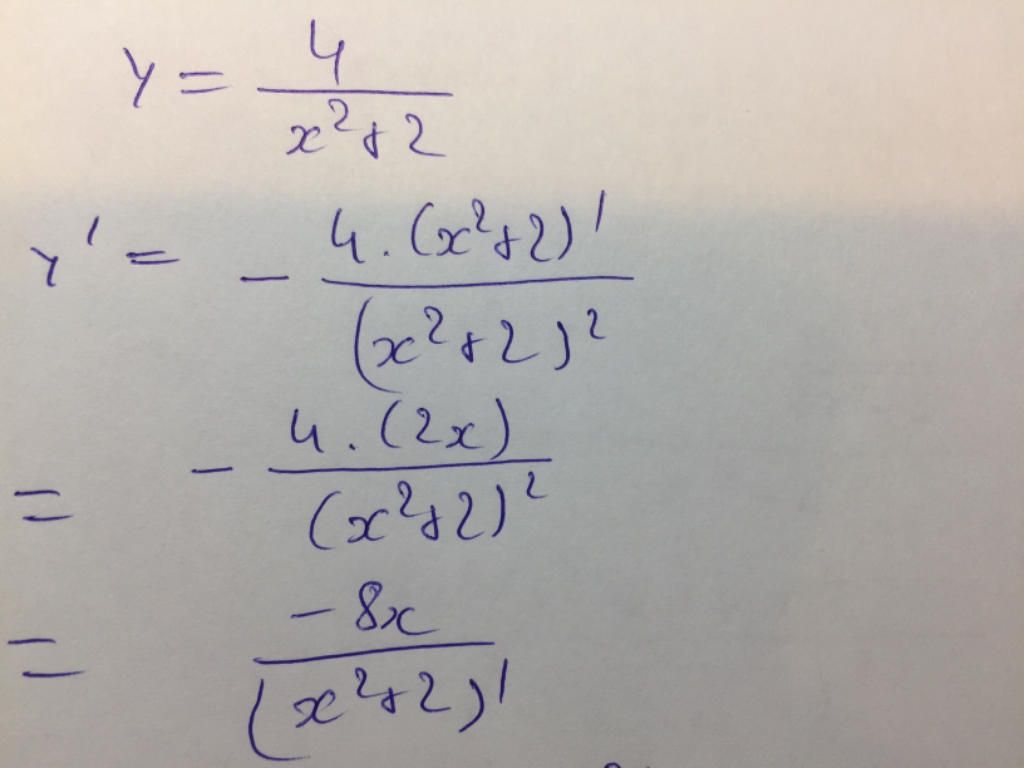 y = 4 / (x²+2)
y' = - 4.(x²+2)' / (x²+2)²
= - 4.(2x) / (x²+2)²
= -8x / (x²+2)'